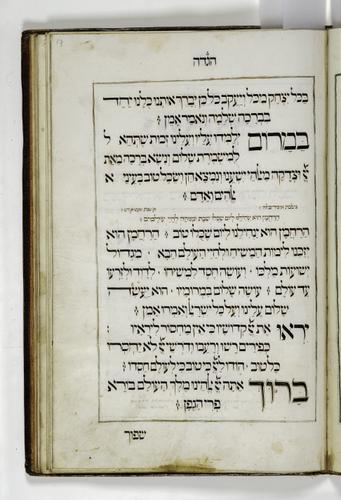 הגדה
בכל יצחק מכל ויעקב כל כן יברך אותנו כלנו יחד
בברכה שלמה ונאמר אמן :
במרום ילמדו עליו ועלינו זכות שתהא ל
למשמרת שלום ונשא ברכה מאת
וצדקה מאלהי ישענו ונמצא חן ושכל טוב בעיני א
אלהים ואדם :
הרחמן הוא ינחילנו ליום שכלו שבת ומנוחה לחיי עולמים :
הרחמן הוא ינחילנו ליום שכולו טוב : הרחמן הוא
יזכנו לימות המשיח ולחיי העולם הבא : מגדול
ישועות מלכו : ועושה חסד למשיחו : לדוד ולזרעו
עד עולם : עושה שלום במרומיו : הוא יעשה
שלום עלינו ועל כל ישראל ואמרו אמן :
יראו את קדושיו כי אין מחסור ליראיו :
כפירים רשו ורעבו ודורשי לא יחסרו
כל טוב : הודו לכי טוב כי לעולם חסדו :
ברוך אתה אלהינו מלך העולם בורא
פרי הגפן :
שפוך